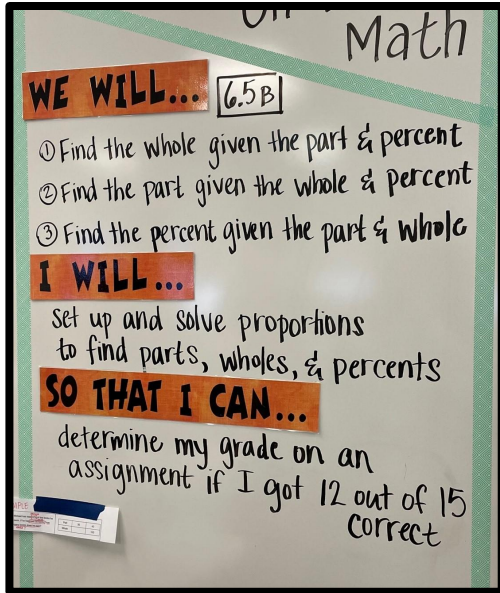 Math
WE WILL... 6.5B
① Find the whole given the part & percent
② Find the part given the whole & percent
③ Find the percent given the part & whole
I WILL...
set up and solve proportions
to find parts, wholes, & percents
SO THAT I CAN...
determine my grade on an
assignment if I got 12 out of 15
correct